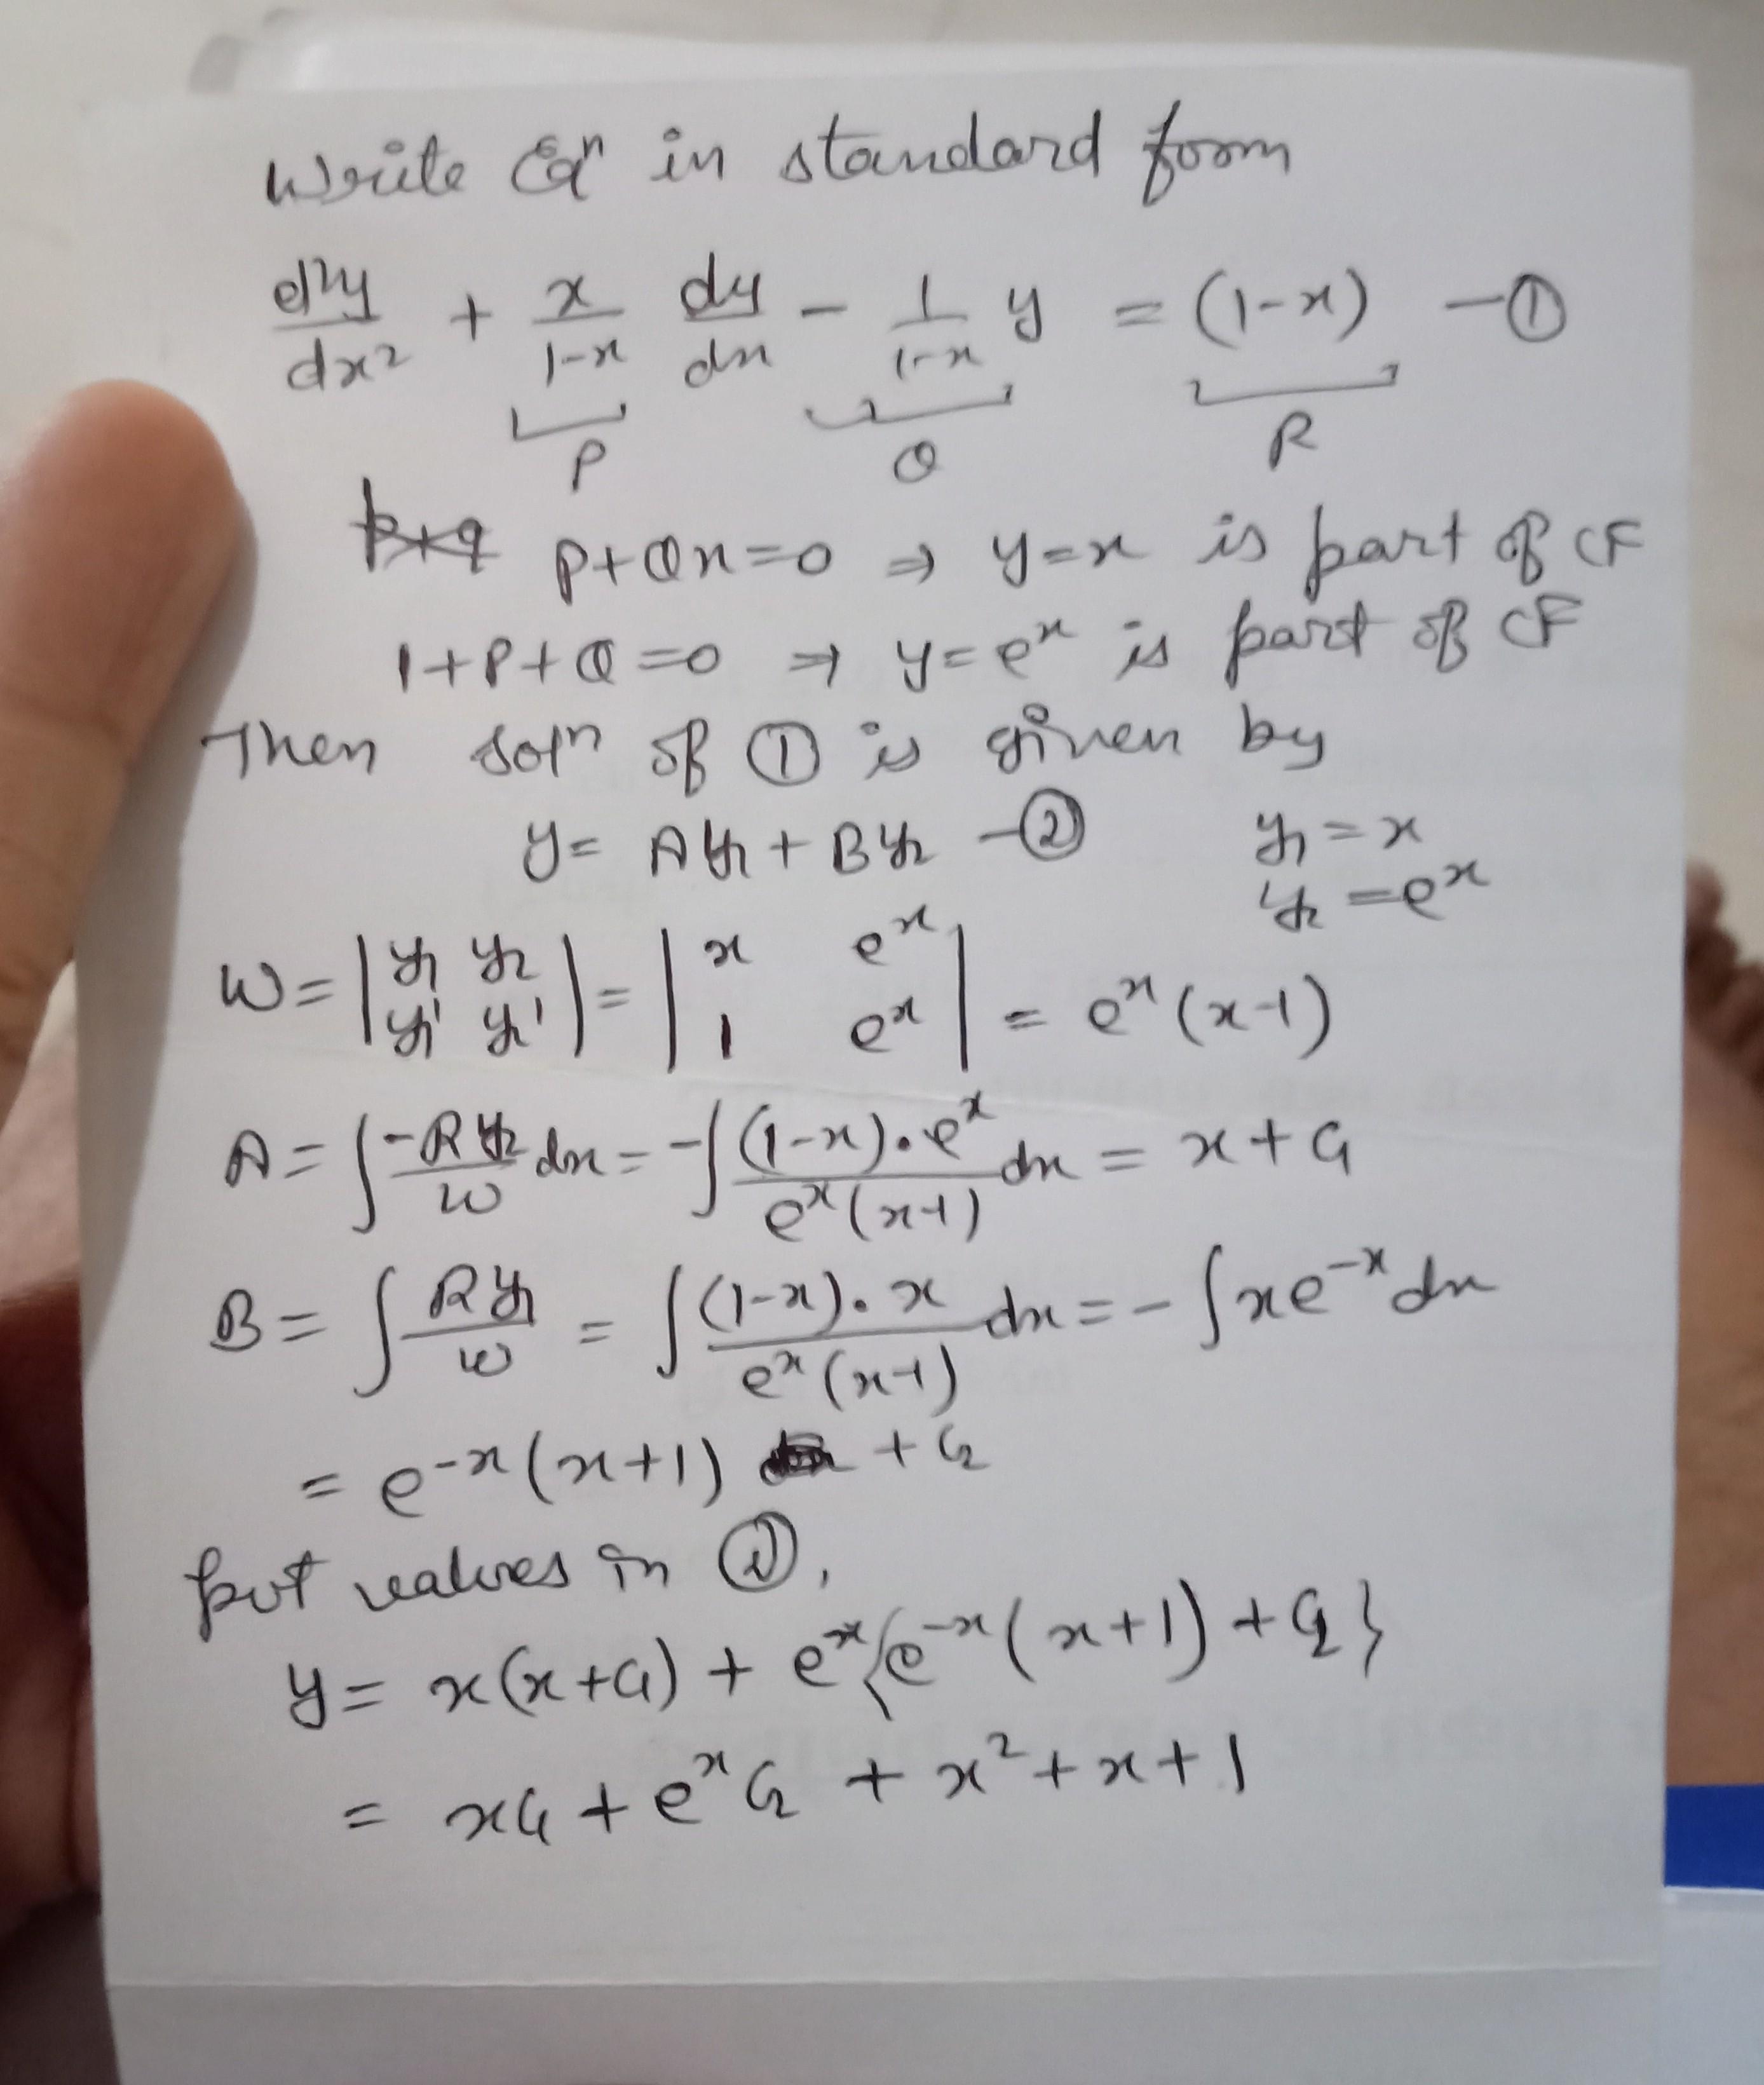 Write Eqⁿ in standard form
d²y/dx² + x/(1-x) dy/dx - 1/(1-x) y = (1-x) - ①
P Q R
P+Qx=0 ⇒ y=x is part of CF
1+P+Q=0 ⇒ y=eˣ is part of CF
Then solⁿ of ① is given by
y= Ay₁ + By₂ - ② y₁ = x
y₂ = eˣ
W= |y₁ y₂; y₁' y₂'| = |x eˣ; 1 eˣ| = eˣ(x-1)
A= ∫ -Ry₂/W dx = -∫ (1-x).eˣ/eˣ(x-1) dx = x+c₁
B= ∫ Ry₁/W = ∫ (1-x).x/eˣ(x-1) dx = -∫xe⁻ˣdx
= e⁻ˣ(x+1) + c₂
put values in ②,
y= x(x+c₁) + eˣ{e⁻ˣ(x+1)+c₂}
= xc₁ + eˣc₂ + x²+x+1